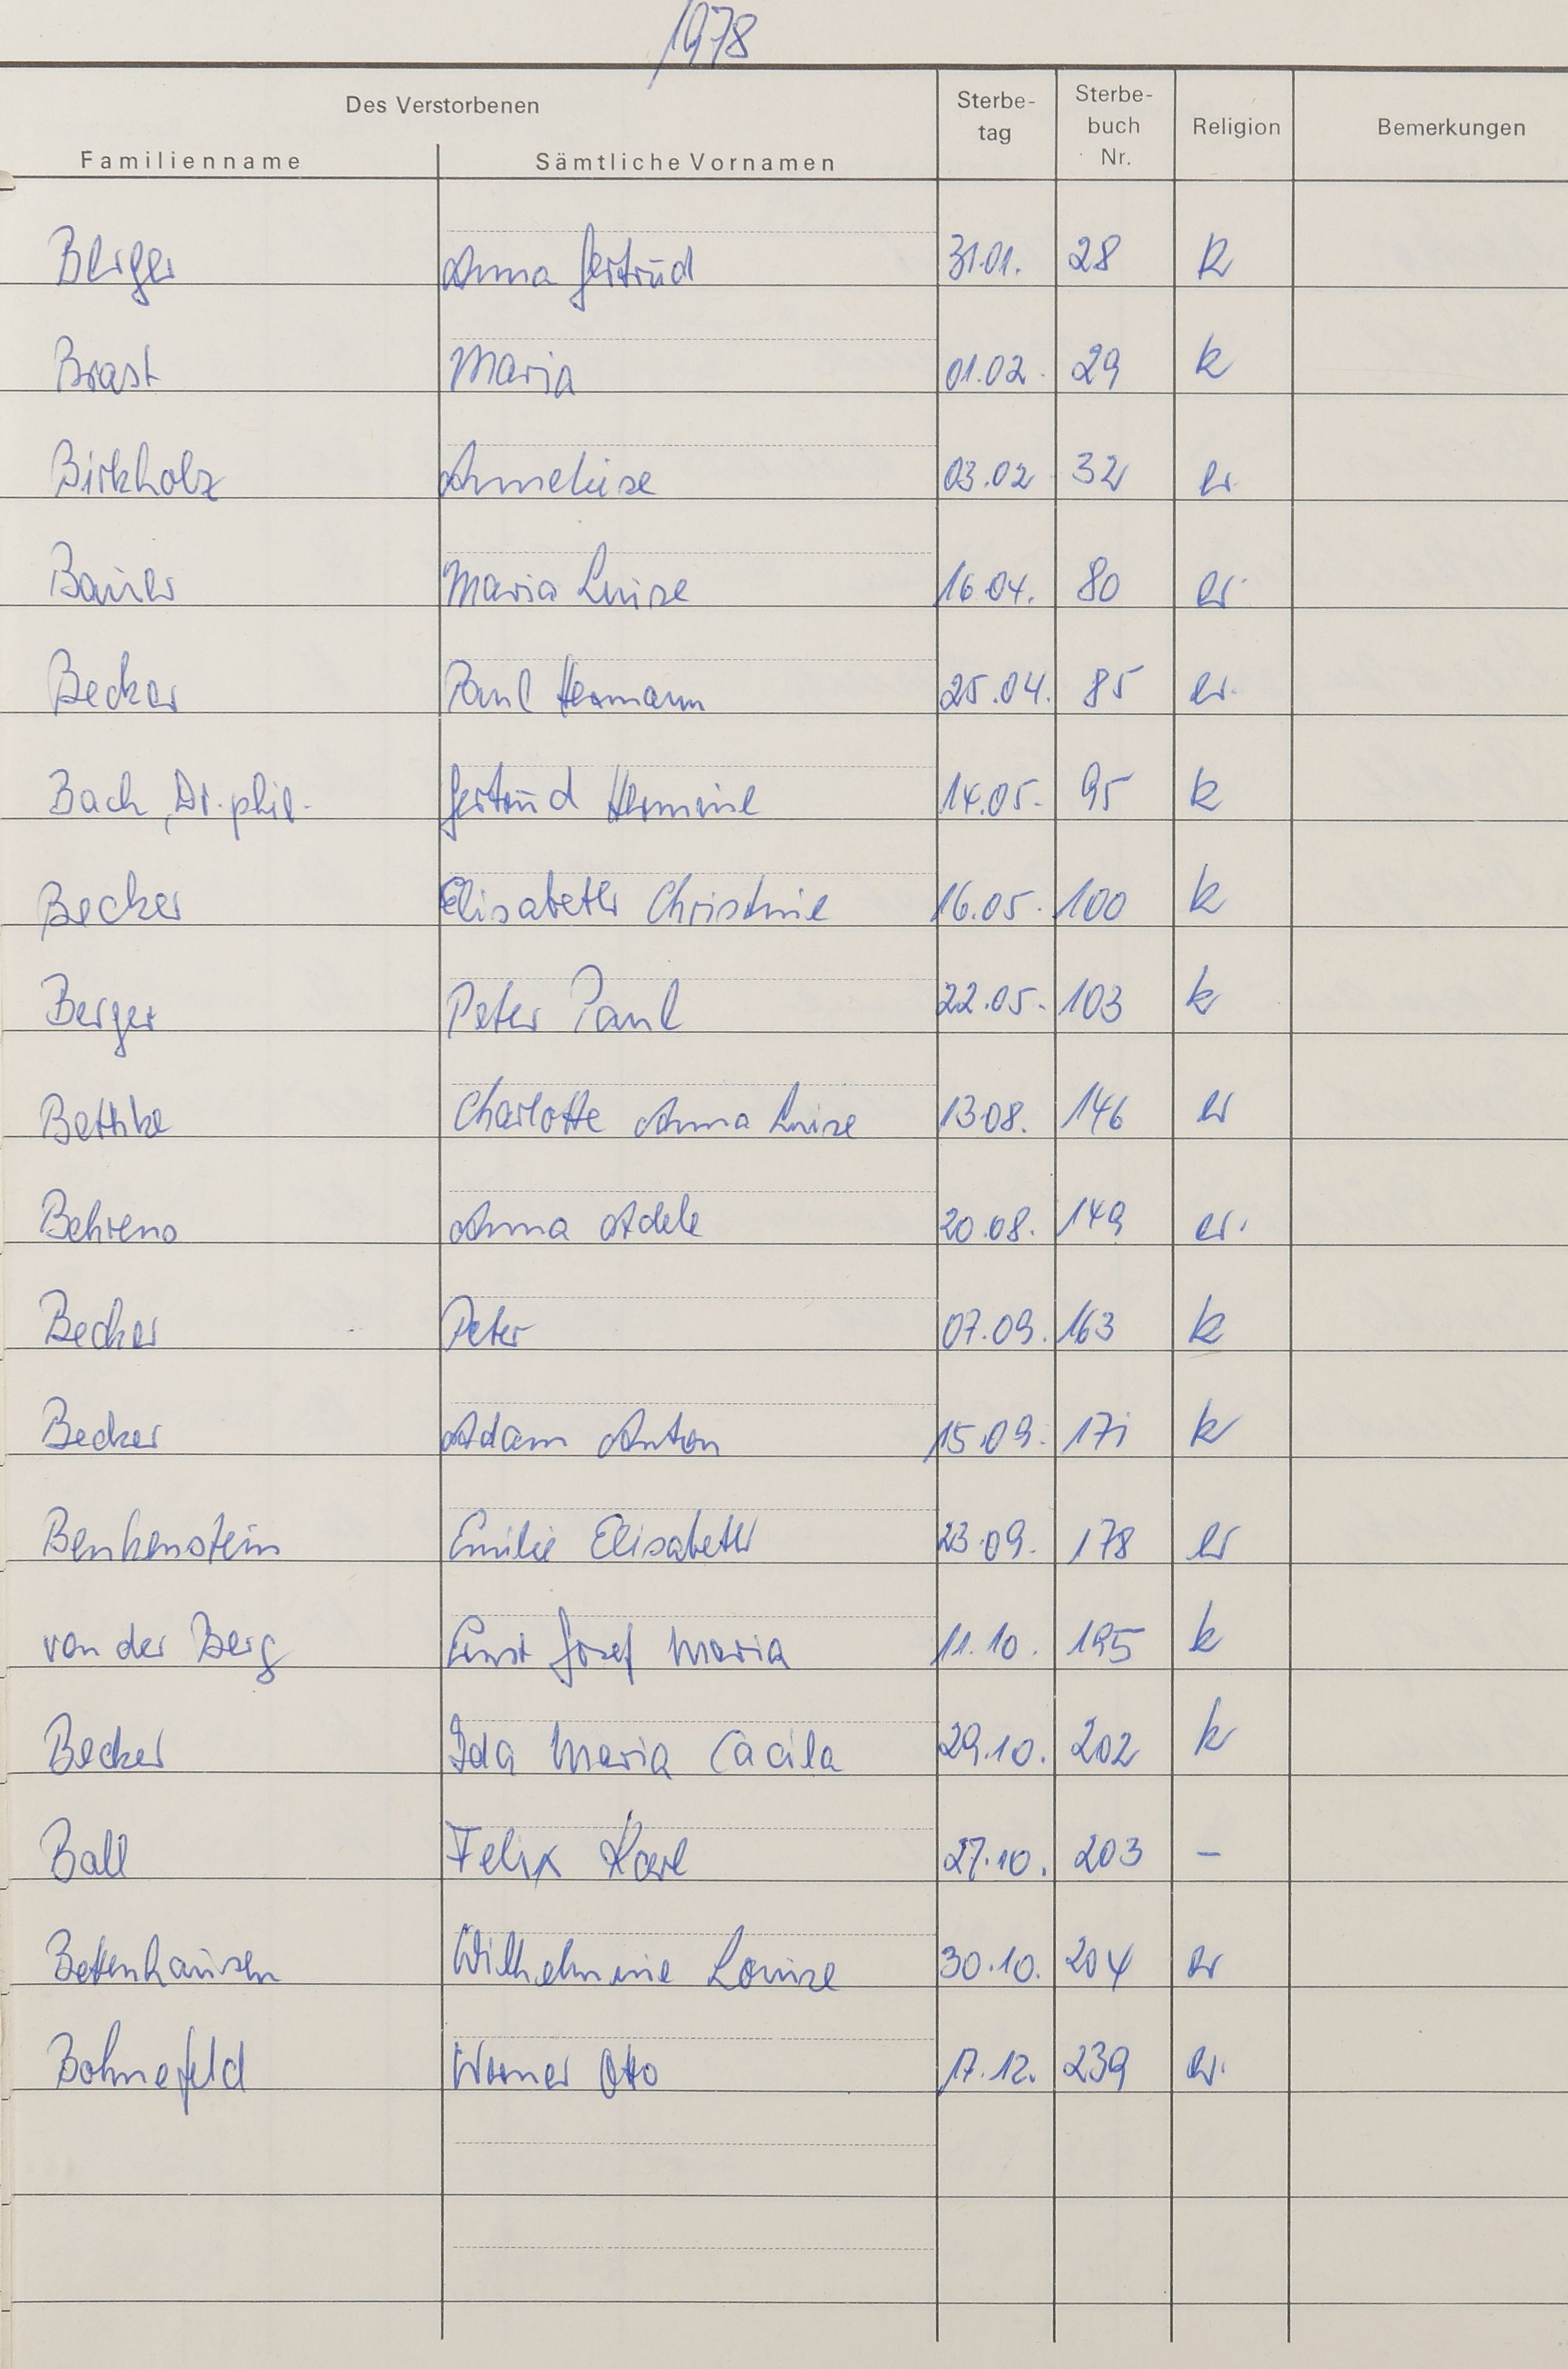 1978
Des Verstorbenen
Familienname Sämtliche Vornamen Sterbe-
tag Sterbe-
buch
Nr. Religion Bemerkungen
Berger Anna Gertrud 31.01. 28 k
Brast Maria 01.02. 29 k
Birkholz Anneliese 03.02 32 ev.
Bauer Maria Luise 16.04. 80 ev.
Becker Paul Hermann 25.04. 85 ev.
Bach, Dr. phil. Gertrud Hermine 14.05. 95 k
Becker Elisabeth Christine 16.05. 100 k
Berger Peter Paul 22.05. 103 k
Bethke Charlotte Anna Luise 13.08. 146 ev
Behrens Anna Adele 20.08. 149 ev.
Becker Peter 07.09. 163 k
Becker Adam Anton 15.09. 171 k
Benkenstein Emilie Elisabeth 23.09. 178 ev
von der Berg Ernst Josef Maria 11.10. 195 k
Becker Ida Maria Cäcila 29.10. 202 k
Ball Felix Karl 27.10. 203 –
Bettenhausen Wilhelmine Louise 30.10. 204 ev
Bohnefeld Werner Otto 17.12. 239 ev.